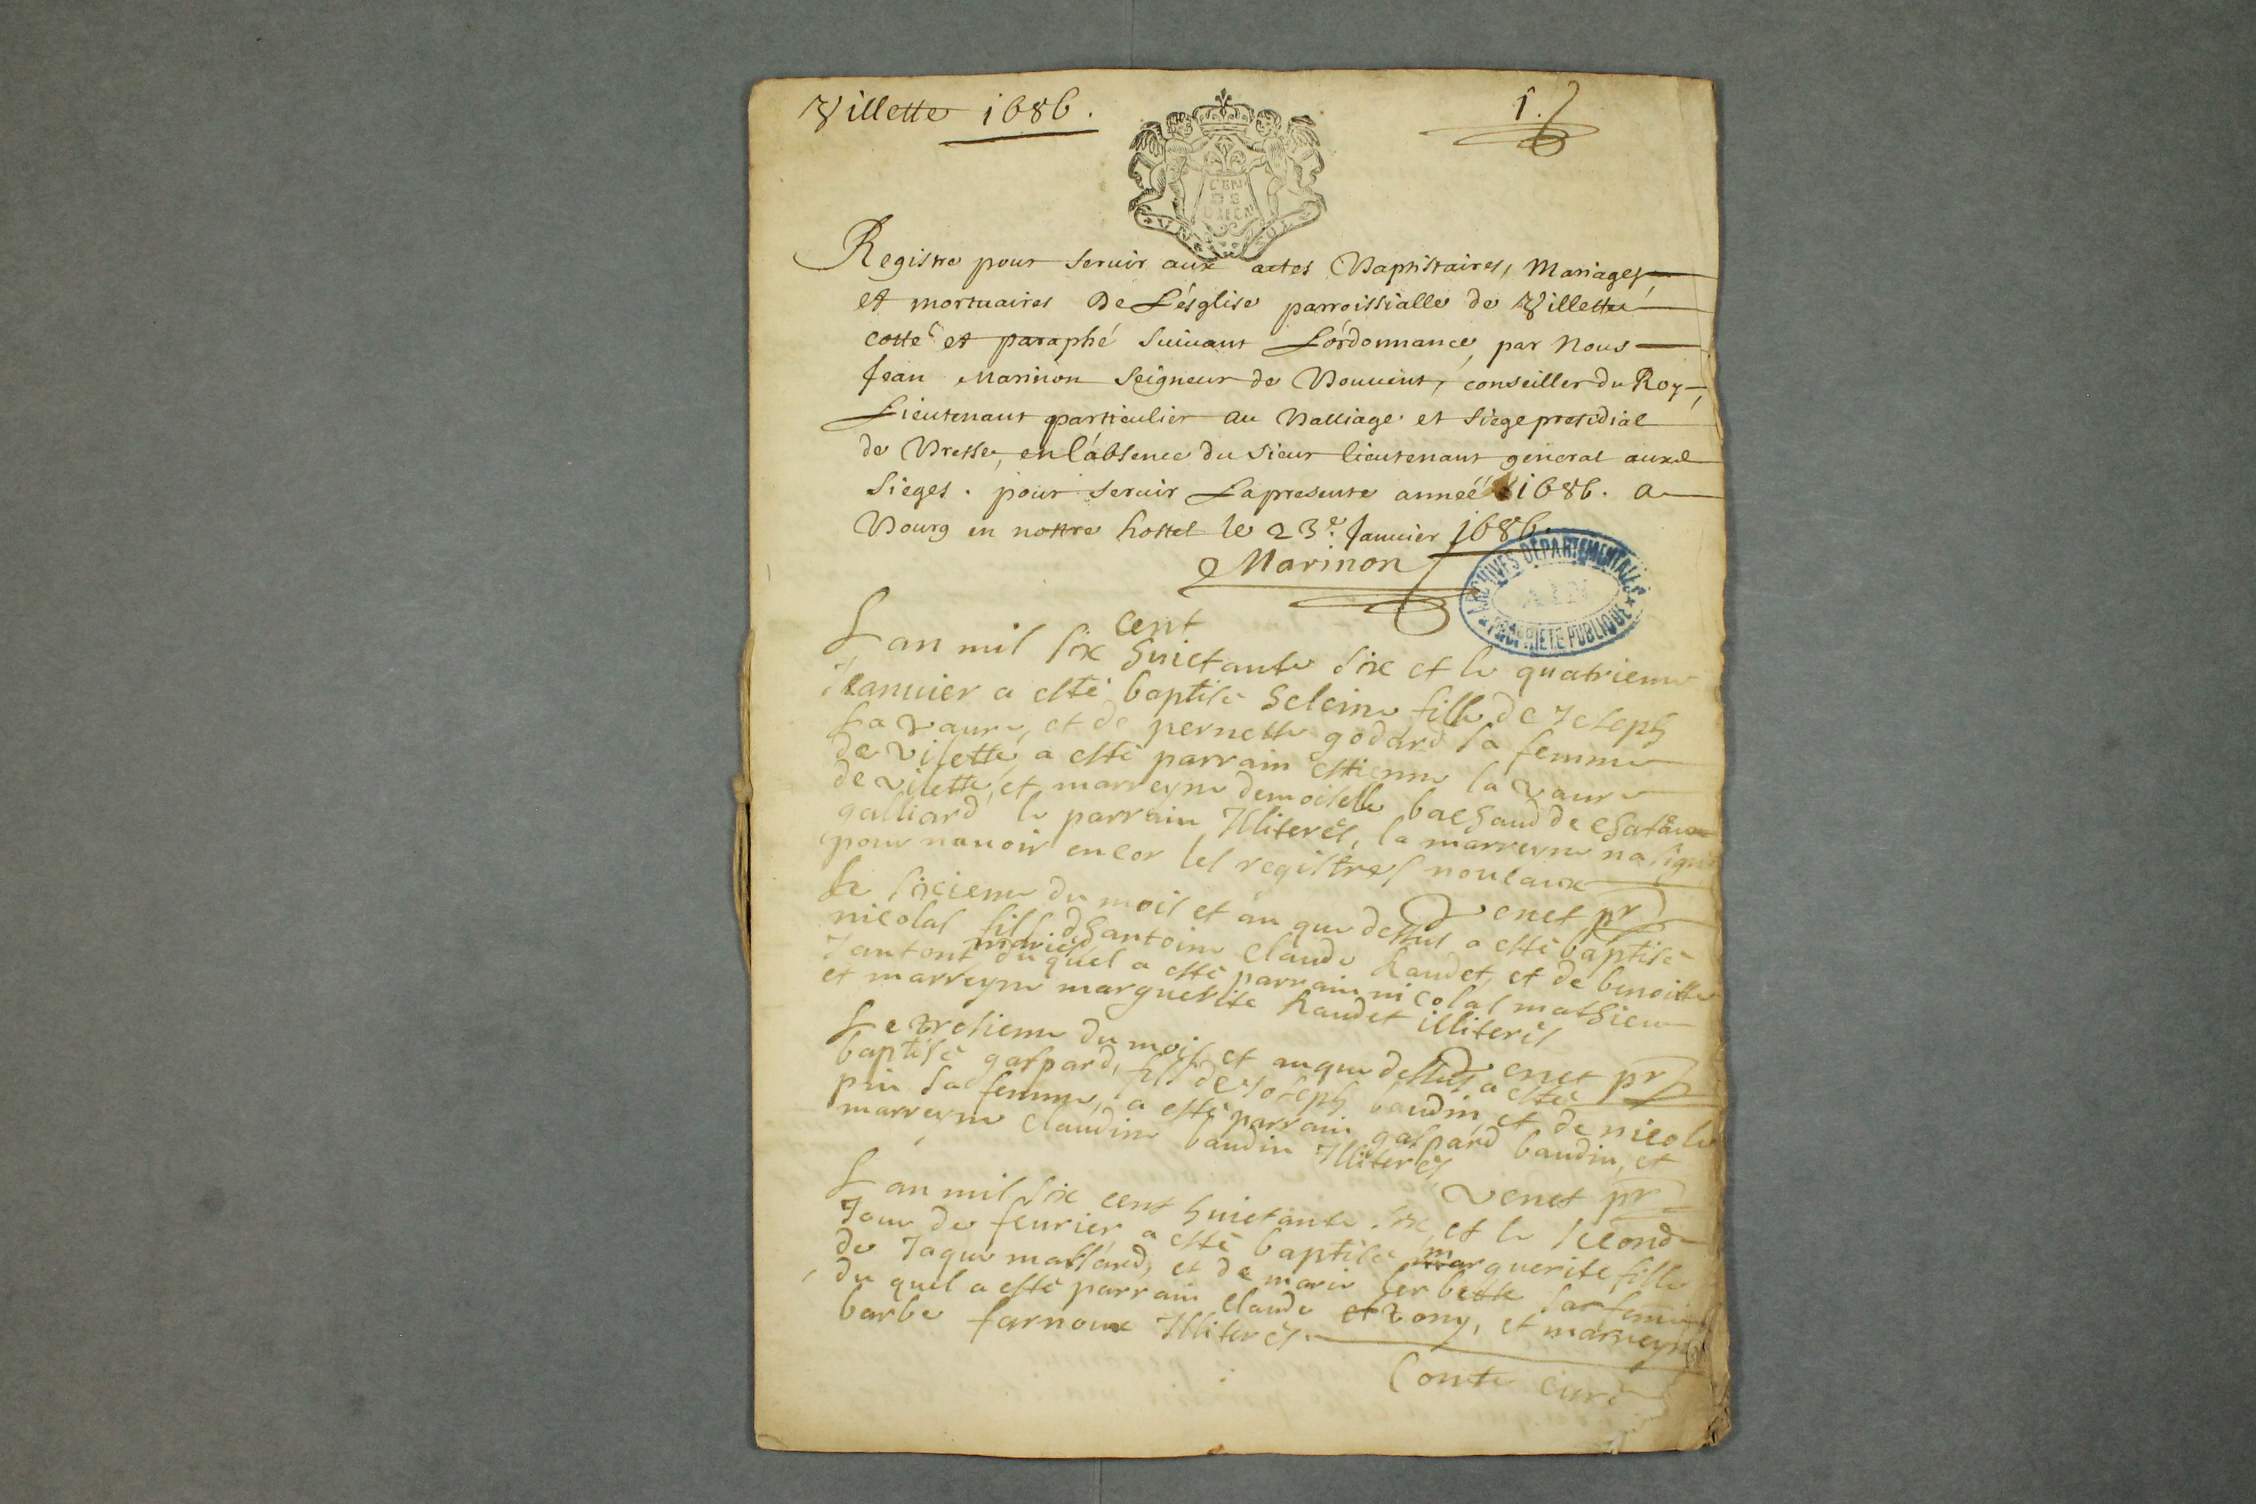 Villette 1686.
1.
GEN
DE
UN SOL
Registre pour seruir aux actes Baptistaires, Mariages,
et mortuaires De L'ésglise parroissialle de Villette
cotté et paraphé suiuant L'órdonnance, par Nous
Jean Marinon seigneur de Bouuent, conseiller du Roy,
Lieutenant particulier au Balliage et siege presidial
de Bresse, en l'ábsence du sieur lieutenant general auxd
sieges. pour seruir La presente anneé 1686. a
Bourg en nottre hostel le 23e. Januier 1686.
Marinon
ARCHIVES DÉPARTEMENTALES
AIN
PROPRIÉTÉ PUBLIQUE
Lan mil six cent huictante six et le quatrieme
Januier a esté baptisé heleine fille de Joseph
La vaure, et de pernette godard sa femme
de vilette, a esté parrain estienne la vaure
de vilette, et marreyne demoiselle bachaud de
galliard le parrain Illiterés, la marreyne na signé
pour nauoir encor les registres nouueaux
Venet pr
Le sixieme du mois et an que dessus a esté baptisé
nicolas fils dhantoine Claude Raudet, et de benoitte
Janton mariés duquel a esté parrain nicolas mathieu
et marreyne marguerite Raudet illiterés
Venet pr
Le du mois et an que dessus a esté
baptisé gaspard, fils de Joseph baudin et de nicole
pin sa femme, a esté parrain gaspard baudin, et
marreyne Claudine baudin Illiterés,
Venet pr
Lan mil six cent huictante six, et le second
Jour de feurier a esté baptisé marguerite, fille
de Jaque massard, et de marie berbette sa femme
du quel a esté parrain Claude et marreyne
barbe farnoux Illiterés.
Conte curé